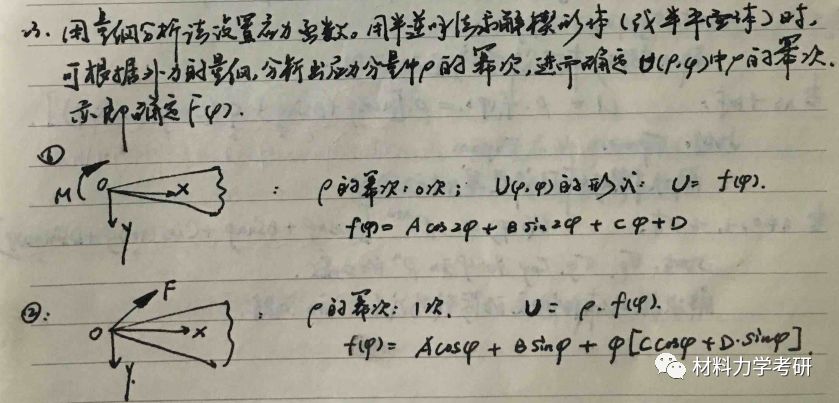 23. 用量纲分析法设置应力函数。用半逆解法求解楔形体(或半平面体)时,
可根据外力的量纲,分析出应力分量中ρ的幂次,进而确定U(ρ,φ)中ρ的幂次.
亦即确定F(φ).
①
M O x : ρ的幂次:0次; U(ρ,φ)的形式: U= f(φ).
y f(φ)= Acos2φ + Bsin2φ + Cφ + D
②: F
O x : ρ的幂次: 1次. U= ρ·f(φ).
y. f(φ)= Acosφ + Bsinφ + φ[Ccosφ + D·sinφ].
材料力学考研